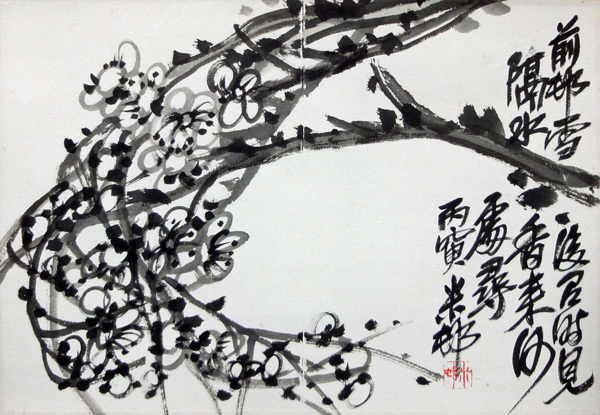 前邨雪後君時見
隔水香來何
處尋
丙寅 米邨